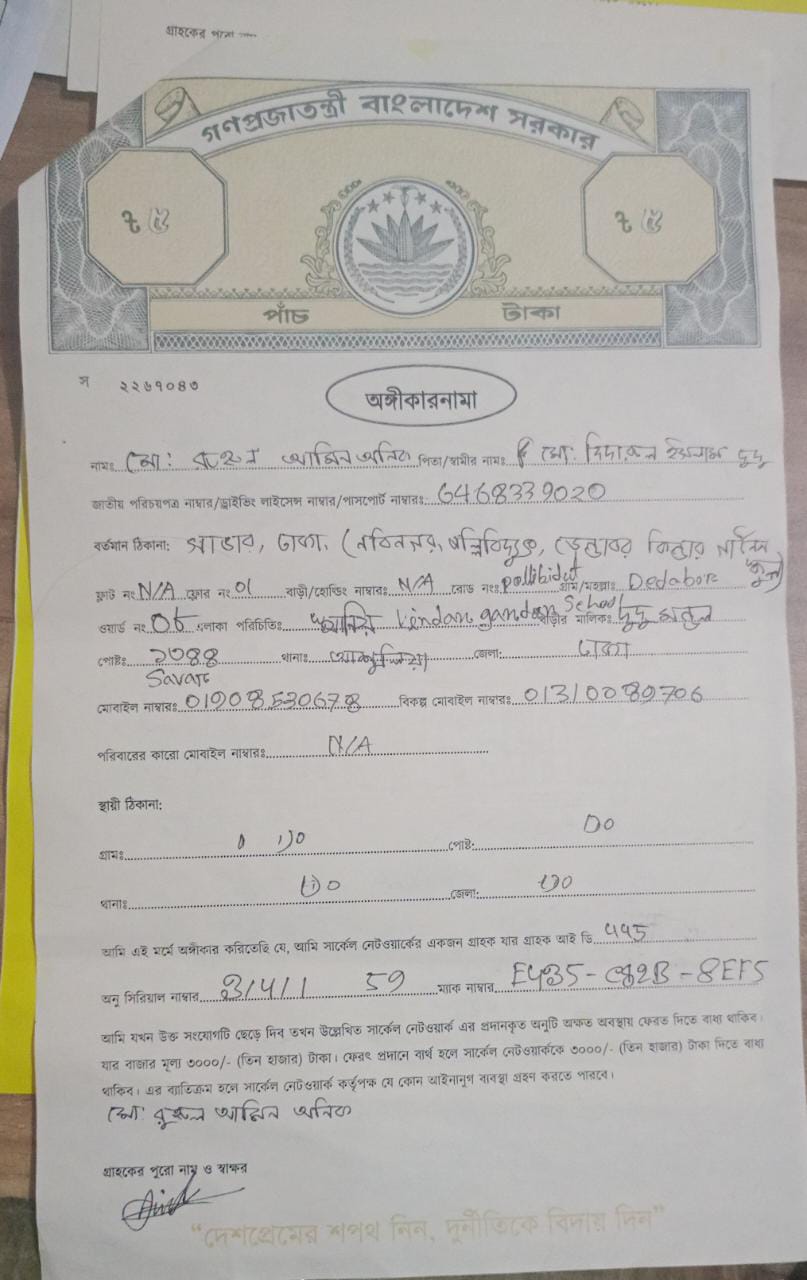 গ্রাহকের পাতা
গণপ্রজাতন্ত্রী বাংলাদেশ সরকার
৳ ৫ ৳ ৫
পাঁচ টাকা
স ২২৬৭০৪৩
অঙ্গীকারনামা
নামঃ মো: রুহুল আমিন অনিক পিতা/স্বামীর নামঃ মো: দিদারুল ইসলাম দুদু
জাতীয় পরিচয়পত্র নাম্বার/ড্রাইভিং লাইসেন্স নাম্বার/পাসপোর্ট নাম্বারঃ 6468339020
বর্তমান ঠিকানা: সাভার, ঢাকা, (নবিনগর, পল্লিবিদ্যুত,
ফ্লাট নং N/A ফ্লোর নং 01 বাড়ী/হোল্ডিং নাম্বারঃ N/A রোড নংঃ pollibidut গ্রাম/মহল্লাঃ Dedabore
ওয়ার্ড নং 05 এলাকা পরিচিতিঃ School বাড়ীর মালিকঃ দুদু
পোষ্টঃ ১৩৪৪ থানাঃ আশুলিয়া জেলা: ঢাকা
Savare
মোবাইল নাম্বারঃ বিকল্প মোবাইল নাম্বারঃ 01310089706
পরিবারের কারো মোবাইল নাম্বারঃ N/A
স্থায়ী ঠিকানা:
গ্রামঃ DO পোষ্ট: DO
থানাঃ DO জেলা: DO
আমি এই মর্মে অঙ্গীকার করিতেছি যে, আমি সার্কেল নেটওয়ার্কের একজন গ্রাহক যার গ্রাহক আই ডি
অনু সিরিয়াল নাম্বার 59 ম্যাক নাম্বার
আমি যখন উক্ত সংযোগটি ছেড়ে দিব তখন উল্লেখিত সার্কেল নেটওয়ার্ক এর প্রদানকৃত অনুটি অক্ষত অবস্থায় ফেরত দিতে বাধ্য থাকিব।
যার বাজার মূল্য ৩০০০/- (তিন হাজার) টাকা। ফেরৎ প্রদানে ব্যর্থ হলে সার্কেল নেটওয়ার্ককে ৩০০০/- (তিন হাজার) টাকা দিতে বাধ্য
থাকিব। এর ব্যতিক্রম হলে সার্কেল নেটওয়ার্ক কর্তৃপক্ষ যে কোন আইনানুগ ব্যবস্থা গ্রহণ করতে পারবে।
মো: রুহুল আমিন অনিক
গ্রাহকের পুরো নাম ও স্বাক্ষর
“দেশপ্রেমের শপথ নিন, দুর্নীতিকে বিদায় দিন”